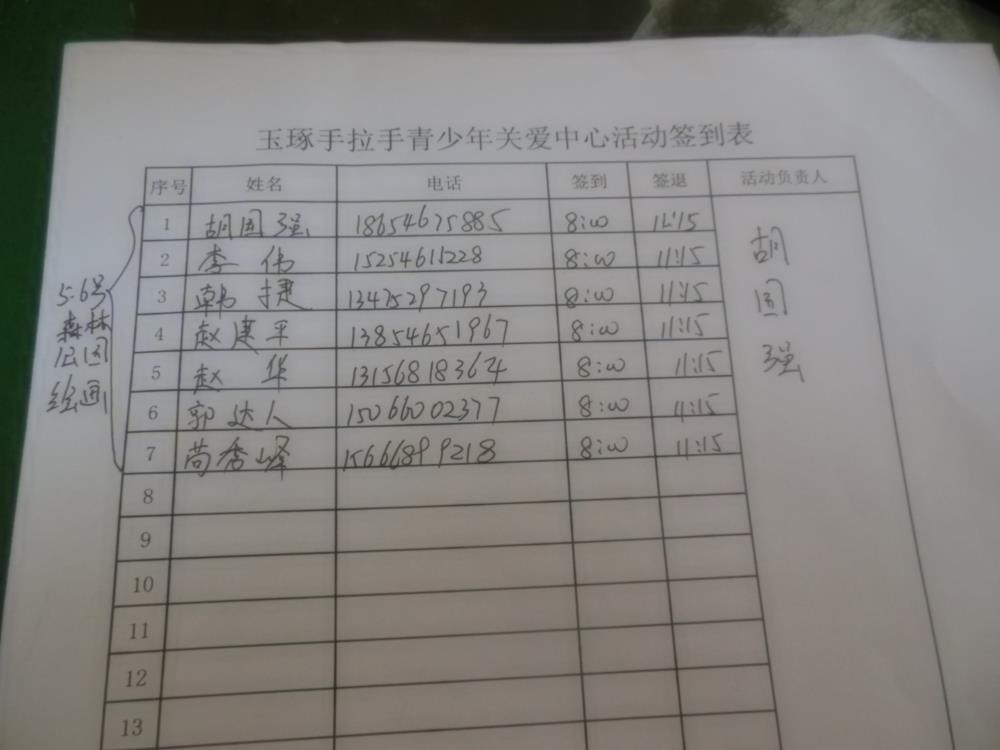 玉琢手拉手青少年关爱中心活动签到表
序号 姓名 电话 签到 签退 活动负责人
1 胡国强 18654675885 8:00 11:15 胡国强
2 李伟 15254611228 8:00 11:15
3 韩捷 13475297193 8:00 11:15
4 赵建平 13854651967 8:00 11:15
5 赵华 13156818364 8:00 11:15
6 郭达人 15066002377 8:00 11:15
7 苘秀峰 15666899218 8:00 11:15
8
9
10
11
12
13
5.6号
森林
公园
绘画